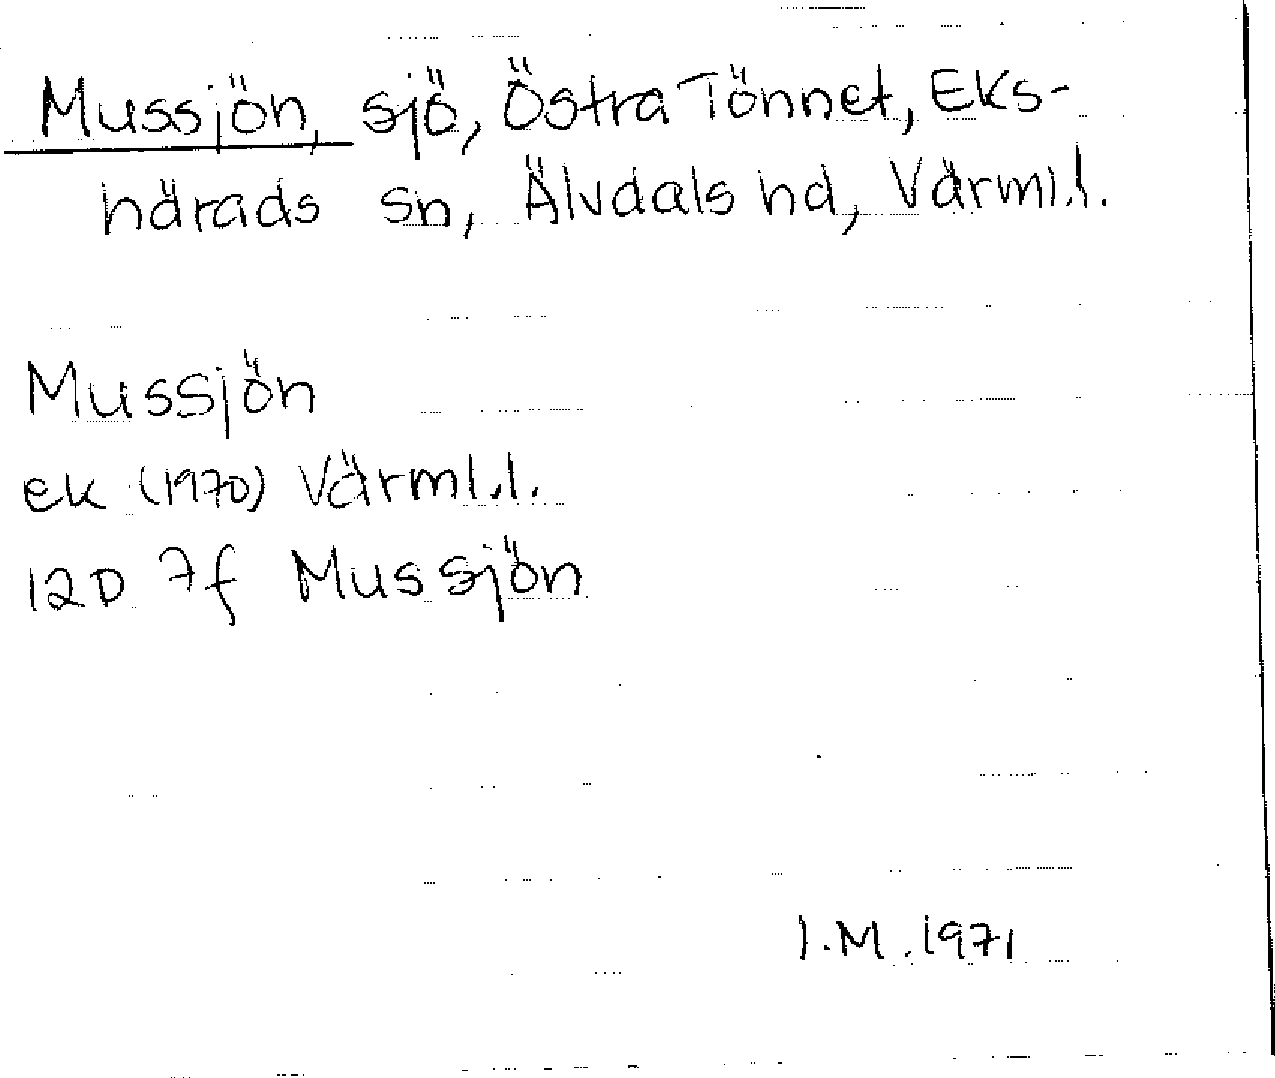 Mussjön, sjö, Östra Tönnet, Eks-
härads sn, Älvdals hd, Värml.l.
Mussjön
ek (1970) Värml.l.
12D 7f Mussjön
I.M. 1971